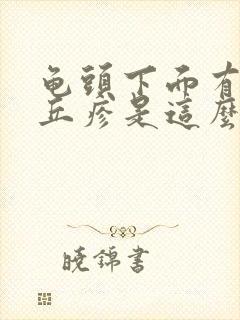 龟頭下面有
丘疹是這麼
曉錦書